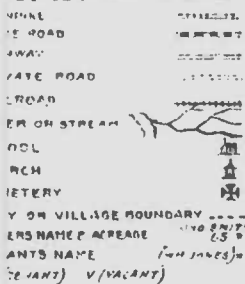 RNPIKE
E ROAD
HWAY
VATE ROAD
LROAD
ER OR STREAM
OOL
RCH
IETERY
Y OR VILLAGE BOUNDARY
ERS NAME & ACREAGE
ANTS NAME (WM JONES)
V (VACANT)